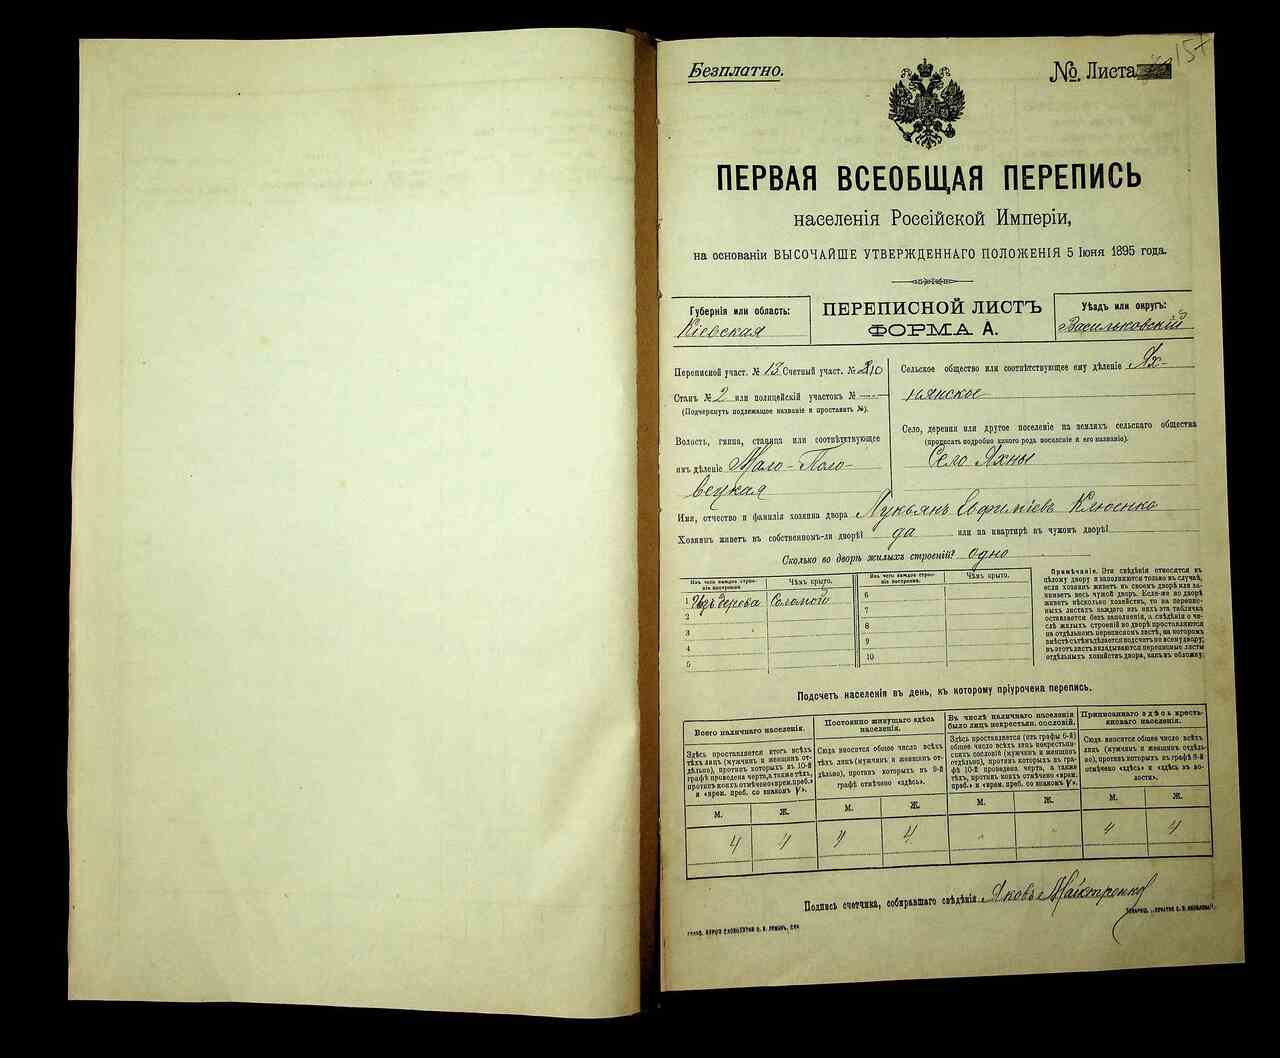 Безплатно.
№ Листа 157
ПЕРВАЯ ВСЕОБЩАЯ ПЕРЕПИСЬ
населенія Россійской Имперіи,
на основаніи ВЫСОЧАЙШЕ УТВЕРЖДЕННАГО ПОЛОЖЕНІЯ 5 Іюня 1895 года.
Губернія или область:
Кіевская
ПЕРЕПИСНОЙ ЛИСТЪ
ФОРМА А.
Уѣздъ или округъ:
Васильковскій
Переписной участ. № 13 Счетный участ. №
Станъ № 2 или полицейскій участокъ № —
(Подчеркнуть подлежащее названіе и проставить №).
Волость, гмина, станица или соотвѣтствующее
имъ дѣленіе Мало-Поло-
вецкая
Сельское общество или соотвѣтствующее ему дѣленіе Ях-
нянское
Село, деревня или другое поселеніе на земляхъ сельскаго общества
(прописать подробно какого рода поселеніе и его названіе).
Село Яхны
Имя, отчество и фамилія хозяина двора Лукьянъ Евфиміевъ Клюенко
Хозяинъ живетъ въ собственномъ-ли дворѣ? да или на квартирѣ въ чужомъ дворѣ?
Сколько во дворѣ жилыхъ строеній? одно
Изъ чего каждое строе-
ніе построено.
Чѣмъ крыто.
Изъ чего каждое строе-
ніе построено.
Чѣмъ крыто.
1 Изъ дерева Соломой
2
3
4
5
6
7
8
9
10
Примѣчаніе. Эти свѣдѣнія относятся къ
цѣлому двору и заполняются только въ случаѣ,
если хозяинъ живетъ въ своемъ дворѣ или за-
нимаетъ весь чужой дворъ. Если-же во дворѣ
живетъ нѣсколько хозяйствъ, то на перепис-
ныхъ листахъ каждаго изъ нихъ эта табличка
оставляется безъ заполненія, а свѣдѣнія о чи-
слѣ жилыхъ строеній во дворѣ проставляются
на отдѣльномъ переписномъ листѣ, на которомъ
вмѣстѣ съ тѣмъ дѣлается подсчетъ по всему двору;
въ этотъ листъ вкладываются переписные листы
отдѣльныхъ хозяйствъ двора, какъ въ обложку.
Подсчетъ населенія въ день, къ которому пріурочена перепись.
Всего наличнаго населенія.
Здѣсь проставляется итогъ всѣхъ
тѣхъ лицъ (мужчинъ и женщинъ от-
дѣльно), противъ которыхъ въ 10-й
графѣ проведена черта, а также тѣхъ,
противъ коихъ отмѣчено «врем. преб.»
и «врем. преб. со знакомъ V».
Постоянно живущаго здѣсь
населенія.
Сюда вносится общее число всѣхъ
лицъ (мужчинъ и женщинъ от-
дѣльно), противъ которыхъ въ 9-й
графѣ отмѣчено «здѣсь».
Въ числѣ наличнаго населенія
было лицъ некрестьян. сословій.
Здѣсь проставляется (изъ графы 6-й)
общее число всѣхъ лицъ некрестьян-
скихъ сословій (мужчинъ и женщинъ
отдѣльно), противъ которыхъ въ гра-
фѣ 10-й проведена черта, а также
тѣхъ, противъ коихъ отмѣчено «врем.
преб.» и «врем. преб. со знакомъ V».
Приписаннаго здѣсь кресть-
янскаго населенія.
Сюда вносится общее число всѣхъ
лицъ (мужчинъ и женщинъ отдѣль-
но), противъ которыхъ въ графѣ 8-й
отмѣчено «здѣсь» и «здѣсь въ во-
лости».
М. Ж. М. Ж. М. Ж. М. Ж.
4 4 4 4 4 4
Подпись счетчика, собиравшаго свѣдѣнія Яковъ